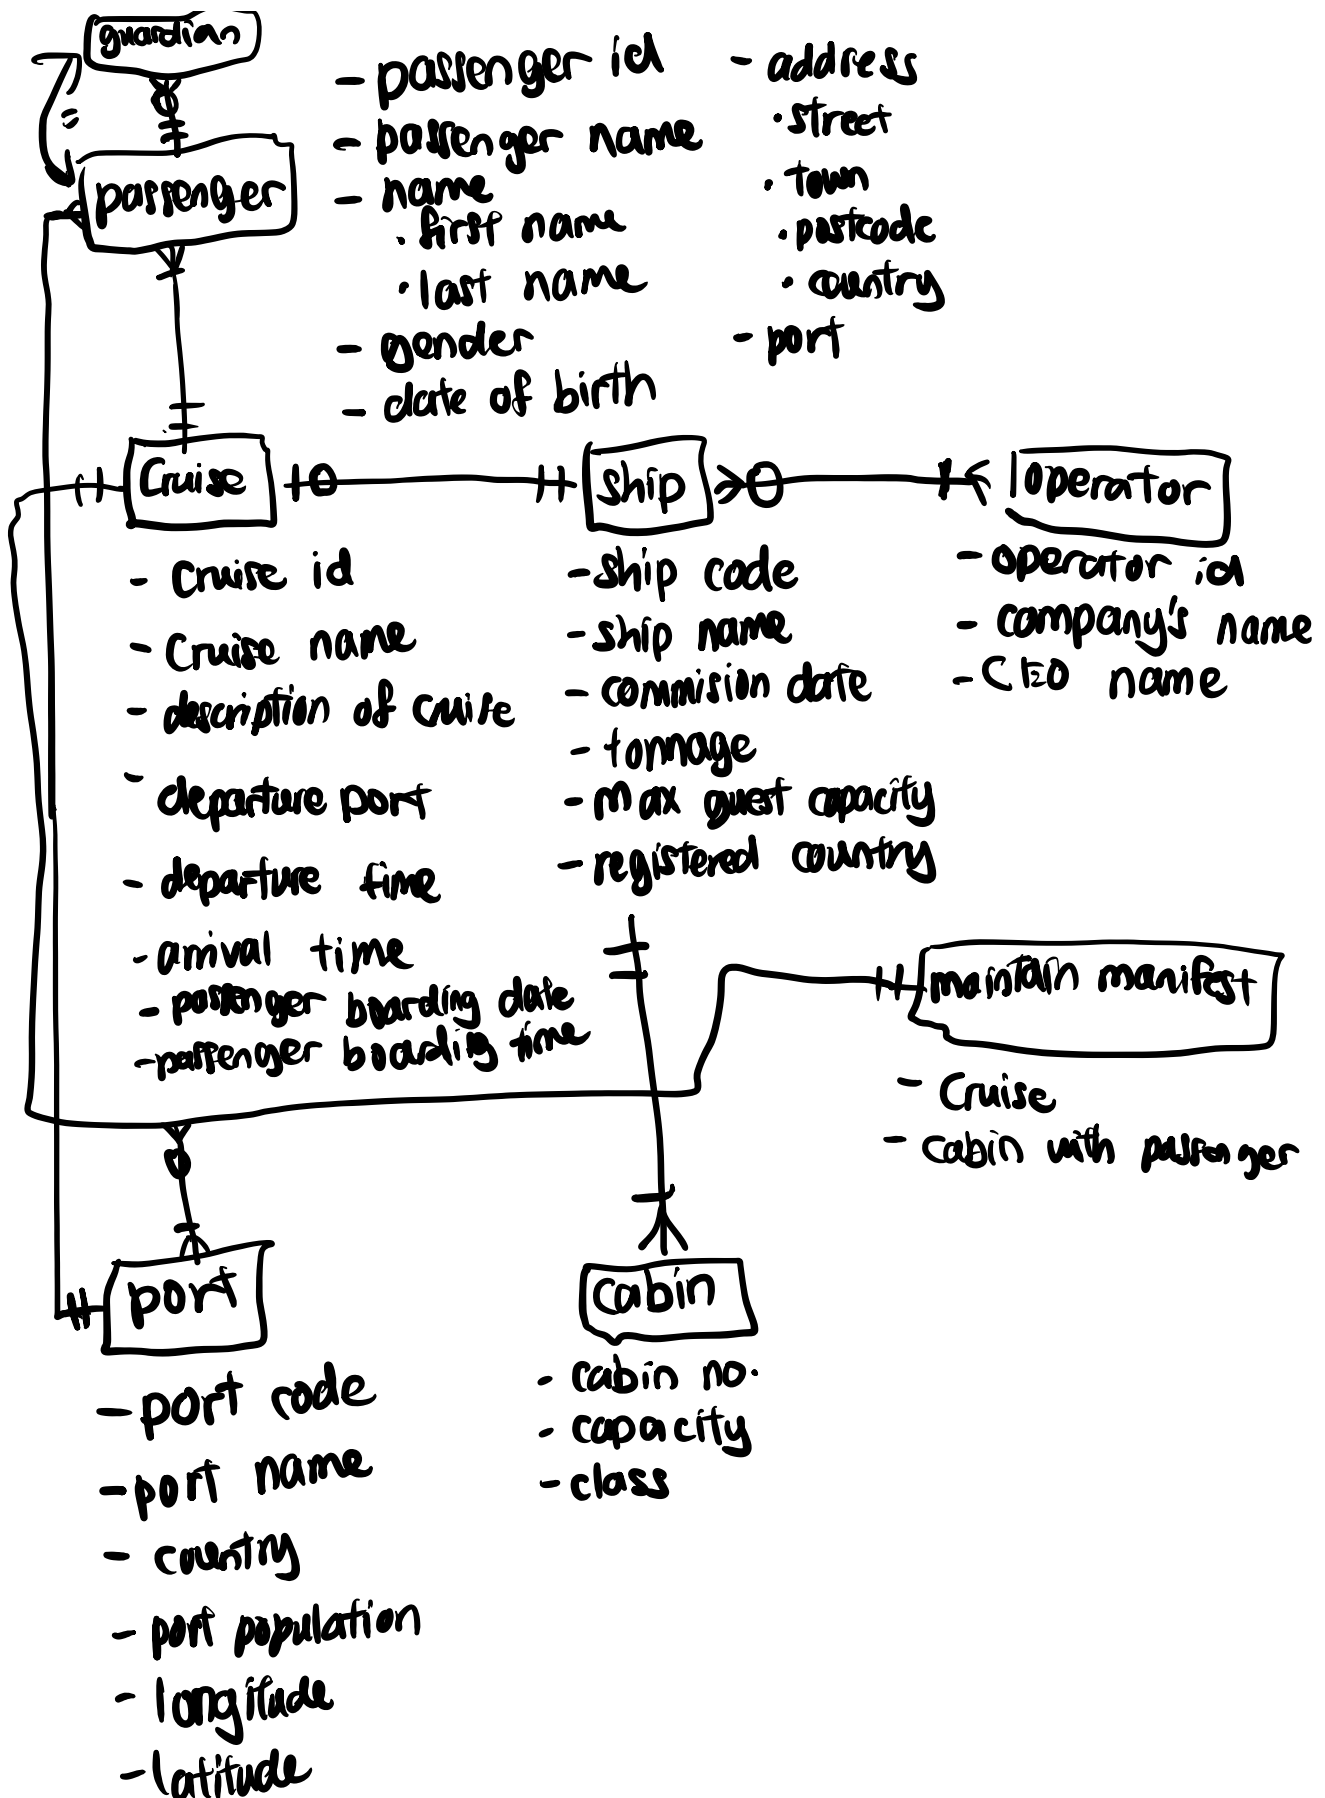 guardian
passenger
- passenger id
- passenger name
- name
· first name
· last name
- gender
- date of birth
- address
· street
· town
· postcode
· country
- port
Cruise
- Cruise id
- Cruise name
- description of cruise
- departure port
- departure time
- arrival time
- passenger boarding date
- passenger boarding time
ship
- ship code
- ship name
- commision date
- tonnage
- max guest capacity
- registered country
operator
- operator id
- company's name
- CEO name
maintain manifest
- Cruise
- cabin with passenger
port
- port code
- port name
- country
- port population
- longitude
- latitude
cabin
- cabin no.
- capacity
- class